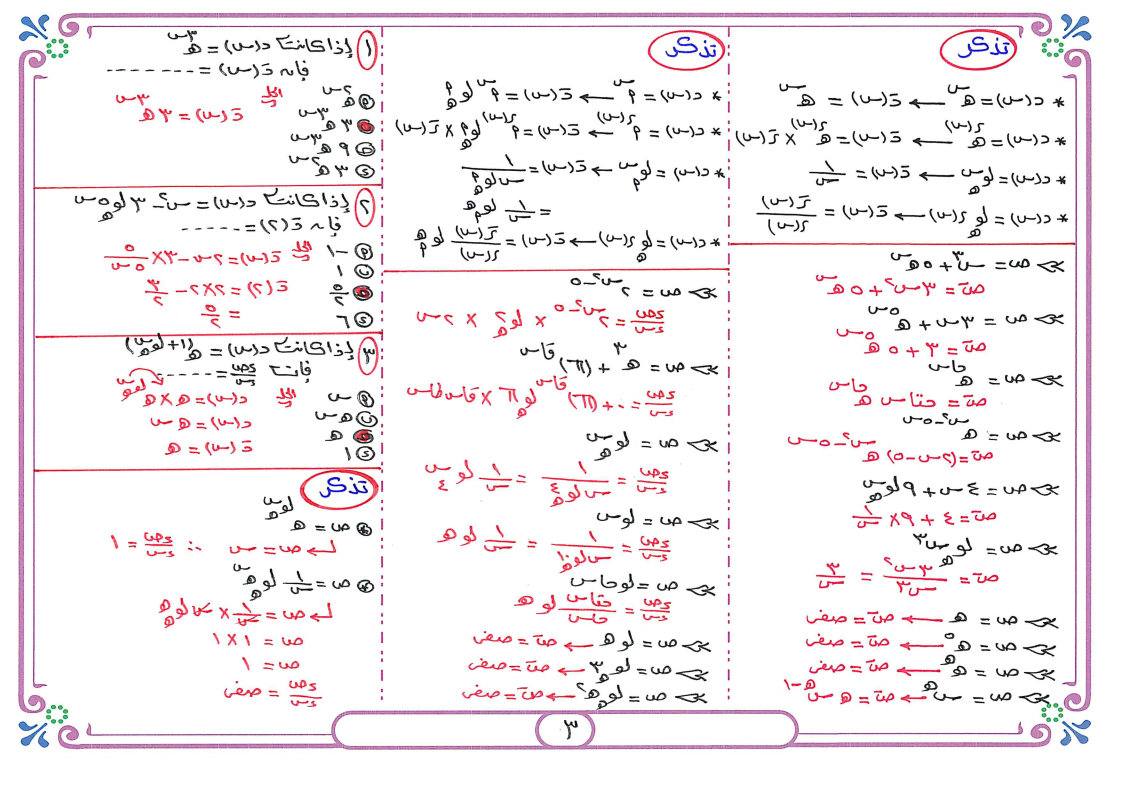 تذكر
* د(س) = هـ^س ← د̄(س) = هـ^س
* د(س) = هـ^ر(س) ← د̄(س) = هـ^ر(س) × ر̄(س)
* د(س) = لو_هـ س ← د̄(س) = ١/س
* د(س) = لو_هـ ر(س) ← د̄(س) = ر̄(س)/ر(س)
ص = س^٣ + ٥هـ^س
ص̄ = ٣س^٢ + ٥هـ^س
ص = ٣س + هـ^٥س
ص̄ = ٣ + ٥هـ^٥س
ص = هـ^حاس
ص̄ = حتاس هـ^حاس
ص = هـ^(س^٢-٥س)
ص̄ = (٢س-٥) هـ^(س^٢-٥س)
ص = ٤س + ٩لو_هـ س
ص̄ = ٤ + ٩×١/س
ص = لو_هـ س^٣
ص̄ = ٣س^٢/س^٣ = ٣/س
ص = هـ ← ص̄ = صفر
ص = هـ^٥ ← ص̄ = صفر
ص = هـ^هـ ← ص̄ = صفر
ص = س^هـ ← ص̄ = هـ س^(هـ-١)
تذكر
* د(س) = م^س ← د̄(س) = م^س لو_هـ م
* د(س) = م^ر(س) ← د̄(س) = م^ر(س) لو_هـ م × ر̄(س)
* د(س) = لو_م س ← د̄(س) = ١/(س لو_هـ م)
= ١/س لو_م هـ
* د(س) = لو_م ر(س) ← د̄(س) = ر̄(س)/ر(س) لو_م هـ
ص = ٢^(س^٢-٥)
ءص/ءس = ٢^(س^٢-٥) × لو_هـ ٢ × ٢س
ص = هـ^٣ + (π)^قاس
ءص/ءس = ٠ + (π)^قاس لو_هـ π × قاس طاس
ص = لو_٤ س
ءص/ءس = ١/(س لو_هـ ٤) = ١/س لو_٤ هـ
ص = لوس
ءص/ءس = ١/(س لو_هـ ١٠) = ١/س لو هـ
ص = لوحاس
ءص/ءس = حتاس/حاس لو هـ
ص = لو هـ ← ص̄ = صفر
ص = لو_هـ ٣ ← ص̄ = صفر
ص = لو_هـ هـ^٢ ← ص̄ = صفر
١ إذا كانت د(س) = هـ^٣س
فإنه د̄(س) = --------
أ هـ^٢س
الحل د̄(س) = ٣هـ^٣س
ب ٣هـ^٣س
ج ٩هـ^٣س
د ٣هـ^٢س
٢ إذا كانت د(س) = س^٢ - ٣لو_هـ ٥س
فإنه د̄(٢) = -----
أ -١
الحل د̄(س) = ٢س - ٣×٥/٥س
ب ١
د̄(٢) = ٢×٢ - ٣/٢
ج ٥/٢
= ٥/٢
د ٦
٣ إذا كانت د(س) = هـ^(١+لو_هـ س)
فإن ءص/ءس = ------
أ س
الحل د(س) = هـ × هـ^لو_هـ س
ب هـ س
د(س) = هـ س
ج هـ
د̄(س) = هـ
د ١
تذكر
* ص = هـ^لو_هـ س
ص = س ∴ ءص/ءس = ١
* ص = ١/س لو_هـ هـ^س
ص = ١/س × س لو_هـ هـ
ص = ١×١
ص = ١
ءص/ءس = صفر
٣